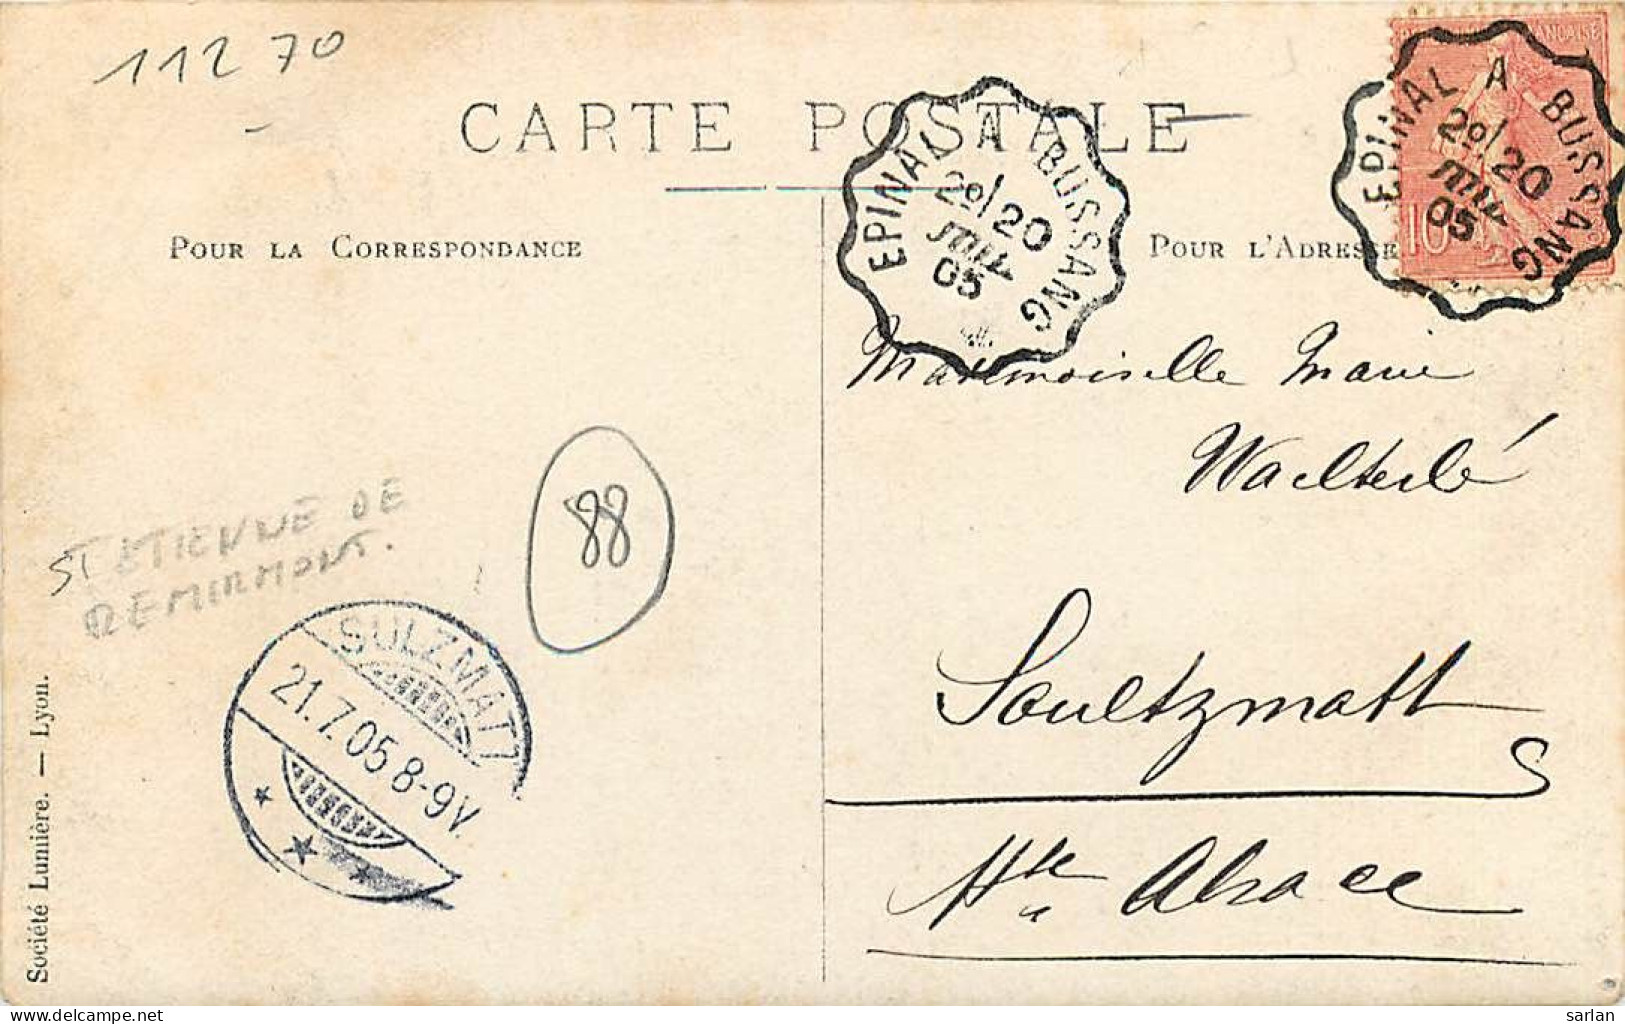 11270
CARTE POSTALE
POUR LA CORRESPONDANCE
POUR L'ADRESSE
EPINAL A BUSSANG
2º/20
JUIL
05
EPINAL A BUSSANG
2º/20
JUIL
05
10
Mademoiselle Marie
Waelterlé
Soultzmatt
Hte Alsace
88
ST ETIENNE DE
REMIRMONT.
SULZMATT
21.7.05 8-9V.
Société Lumière. — Lyon.
delcampe.net
sarlan